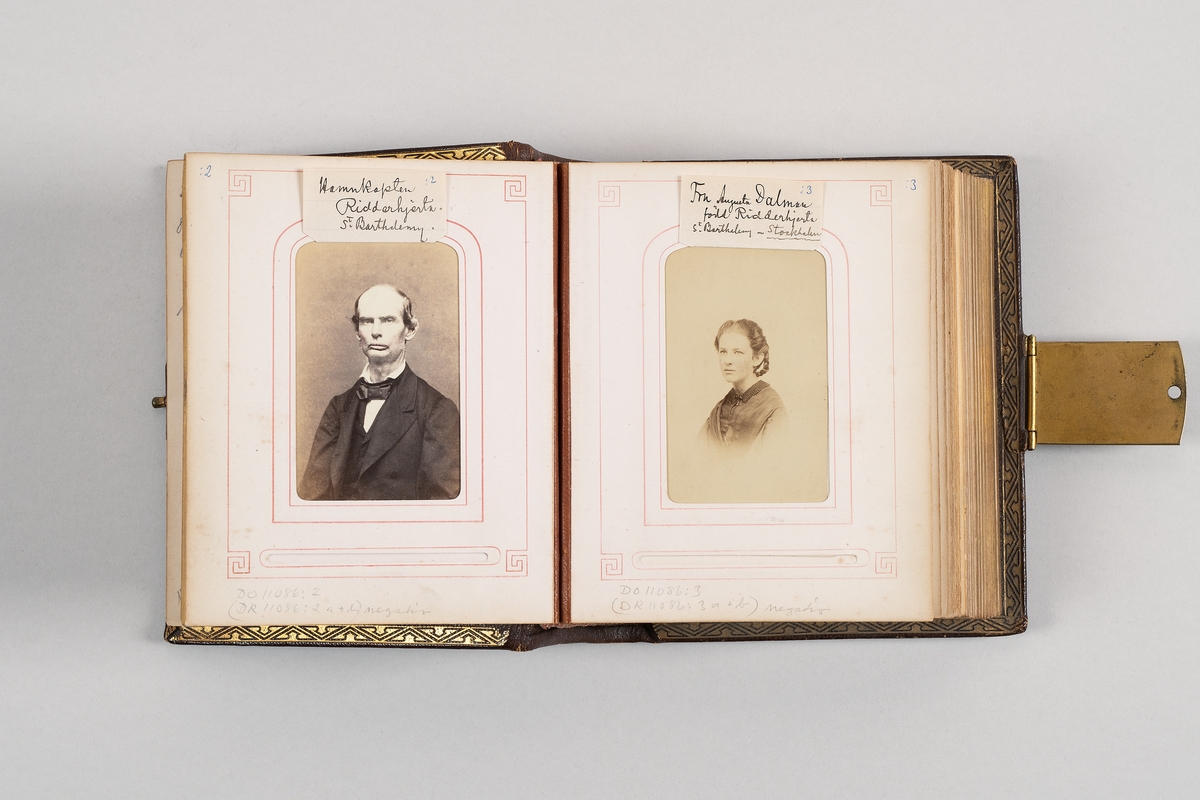 :2
:2
Hamnkapten
Ridderhjerta.
St Barthelemy.
DO 11086:2
(DR 11086:2 a+b) negativ
:3
:3
Fru Augusta Dalman
född Ridderhjerta
St Barthelemy – Stockholm
DO 11086:3
(DR 11086:3 a+b) negativ